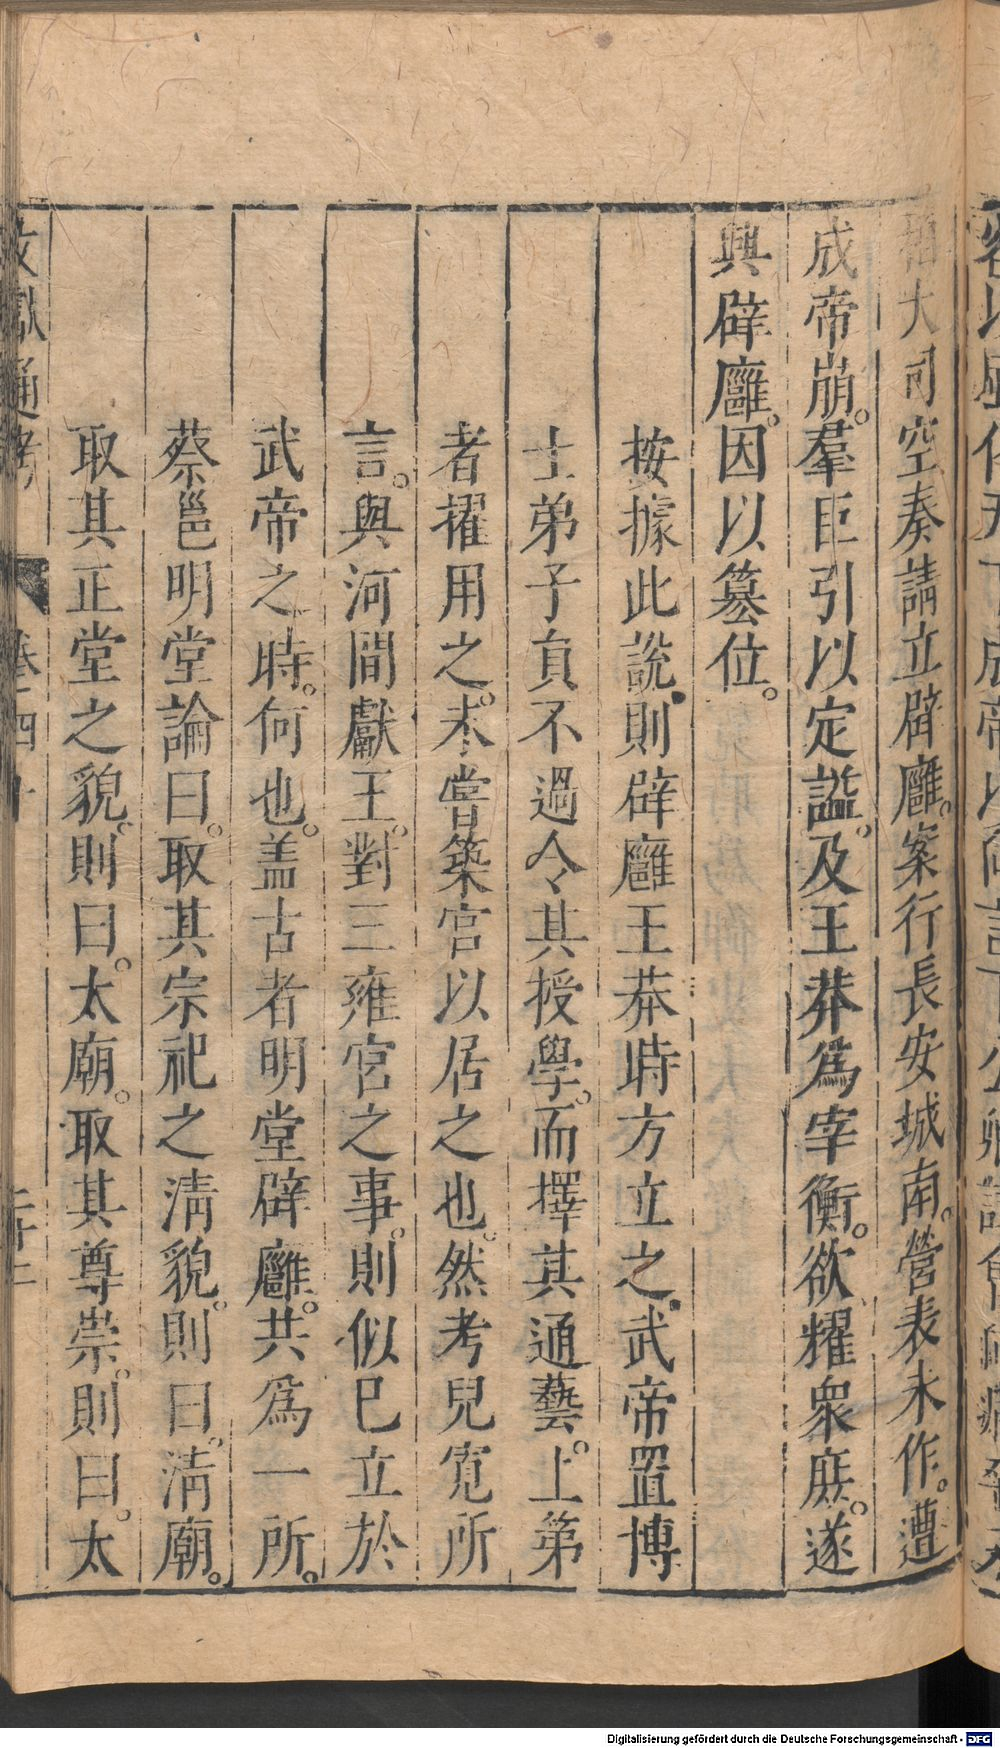 相大司空奏請立辟廱。案行長安城南。營表未作。遭
成帝崩。羣臣引以定謚。及王莽爲宰衡。欲耀衆庶。遂
興辟廱。因以簒位。
按據此說。則辟廱王莽時方立之。武帝置博
士弟子員不過令其授學。而擇其通藝。上第
者擢用之。未嘗築宮以居之也。然考兒寬所
言。與河間獻王。對三雍宮之事。則似已立於
武帝之時。何也。盖古者明堂辟廱。共爲一所。
蔡邕明堂論曰。取其宗祀之淸貌。則曰。淸廟。
取其正堂之貌。則曰。太廟。取其尊崇。則曰。太
文獻通考 卷四十 二十二
Digitalisierung gefördert durch die Deutsche Forschungsgemeinschaft - DFG